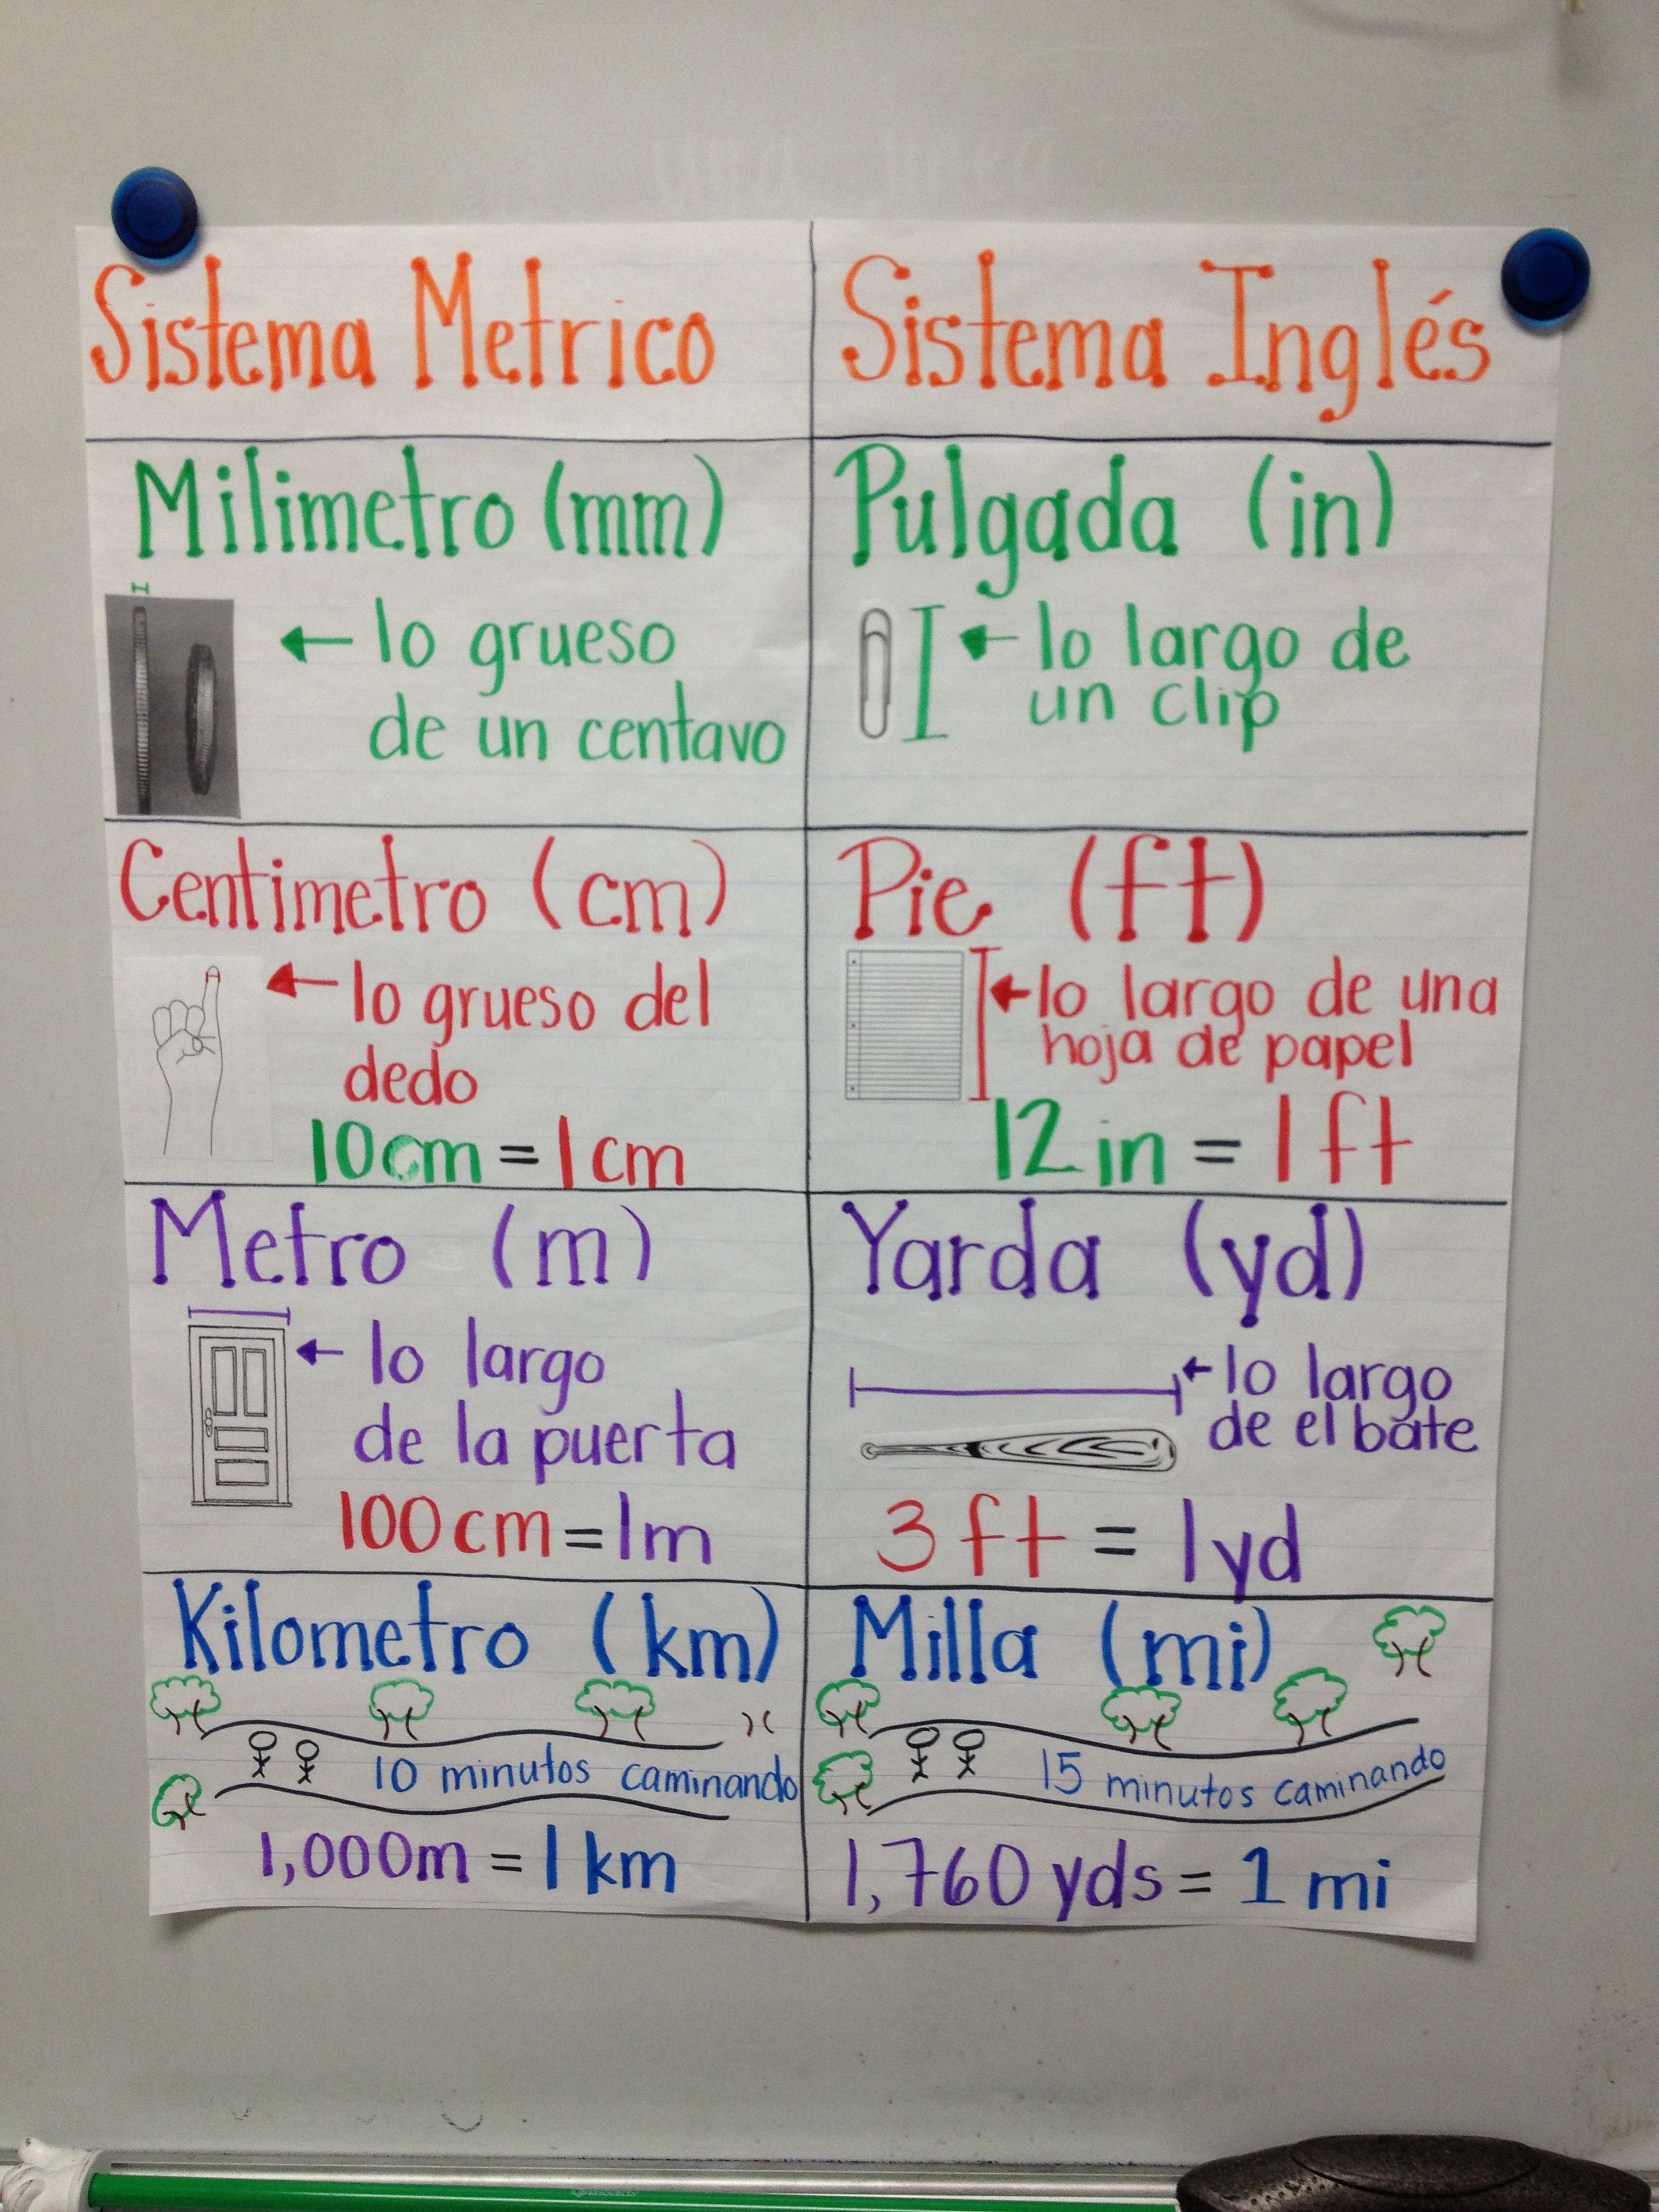 Sistema Metrico
Sistema Inglés
Milimetro (mm)
lo grueso
de un centavo
Pulgada (in)
lo largo de
un clip
Centimetro (cm)
lo grueso del
dedo
10cm = 1cm
Pie (ft)
lo largo de una
hoja de papel
12 in = 1ft
Metro (m)
lo largo
de la puerta
100cm = 1m
Yarda (yd)
lo largo
de el bate
3 ft = 1yd
Kilometro (km)
10 minutos caminando
1,000m = 1km
Milla (mi)
15 minutos caminando
1,760 yds = 1 mi